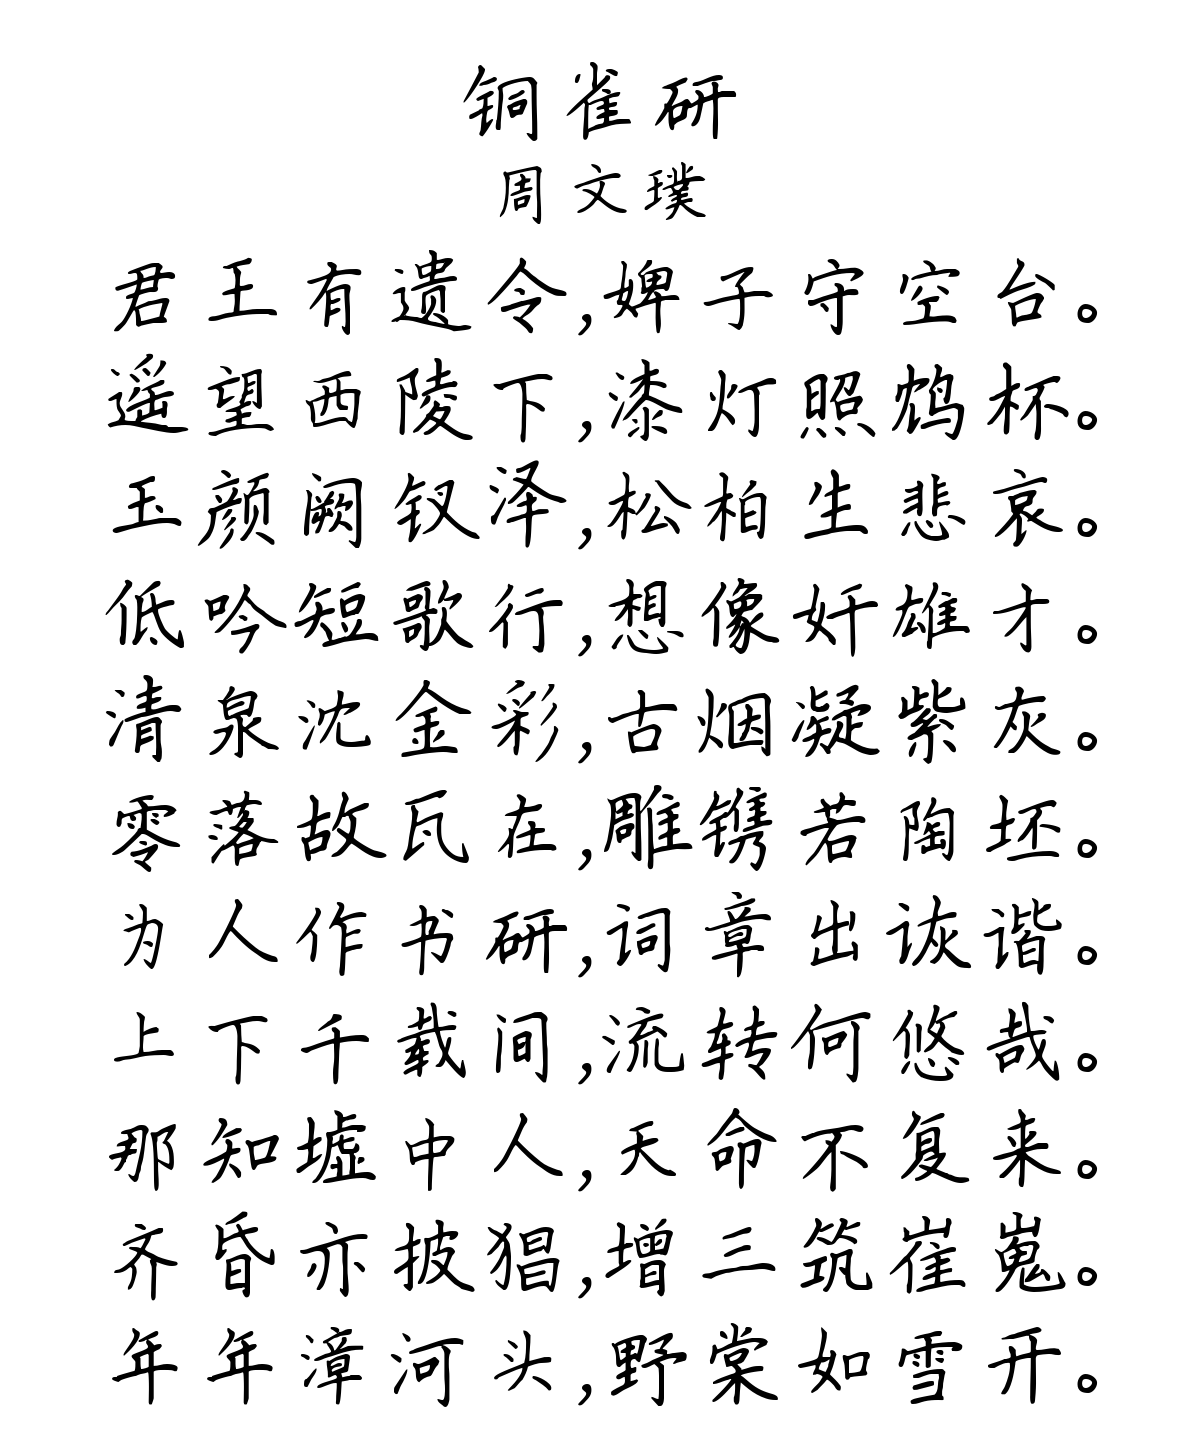 铜雀研
周文璞
君王有遗令,婢子守空台。
遥望西陵下,漆灯照鸩杯。
玉颜阙钗泽,松柏生悲哀。
低吟短歌行,想像奸雄才。
清泉沈金彩,古烟凝紫灰。
零落故瓦在,雕镌若陶坯。
为人作书研,词章出诙谐。
上下千载间,流转何悠哉。
那知墟中人,天命不复来。
齐昏亦披猖,增三筑崔嵬。
年年漳河头,野棠如雪开。